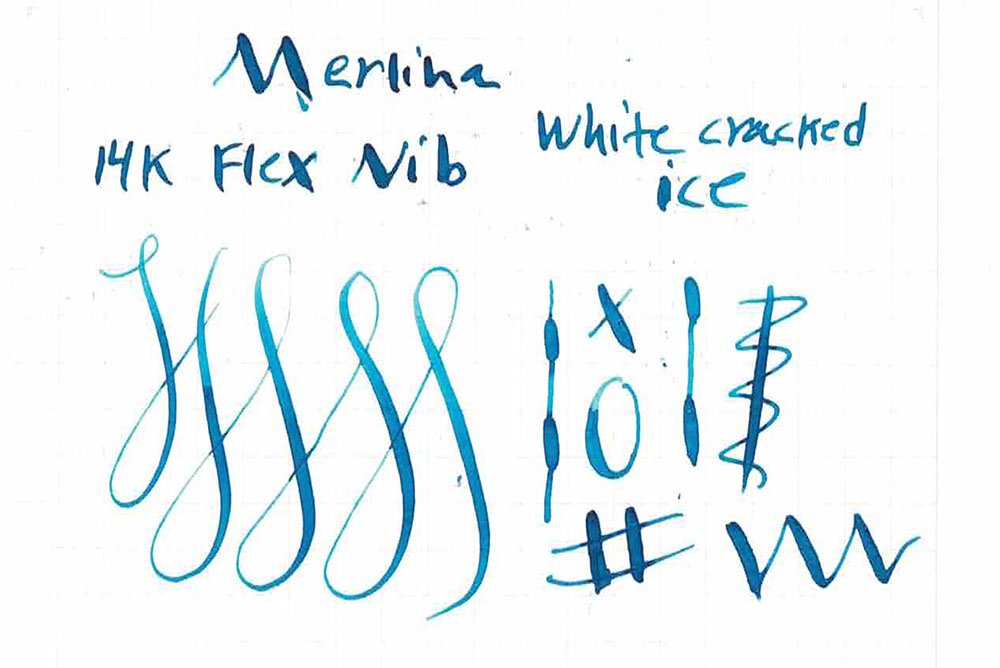 Merlina
14K Flex Nib
White cracked
ice
X
O
#